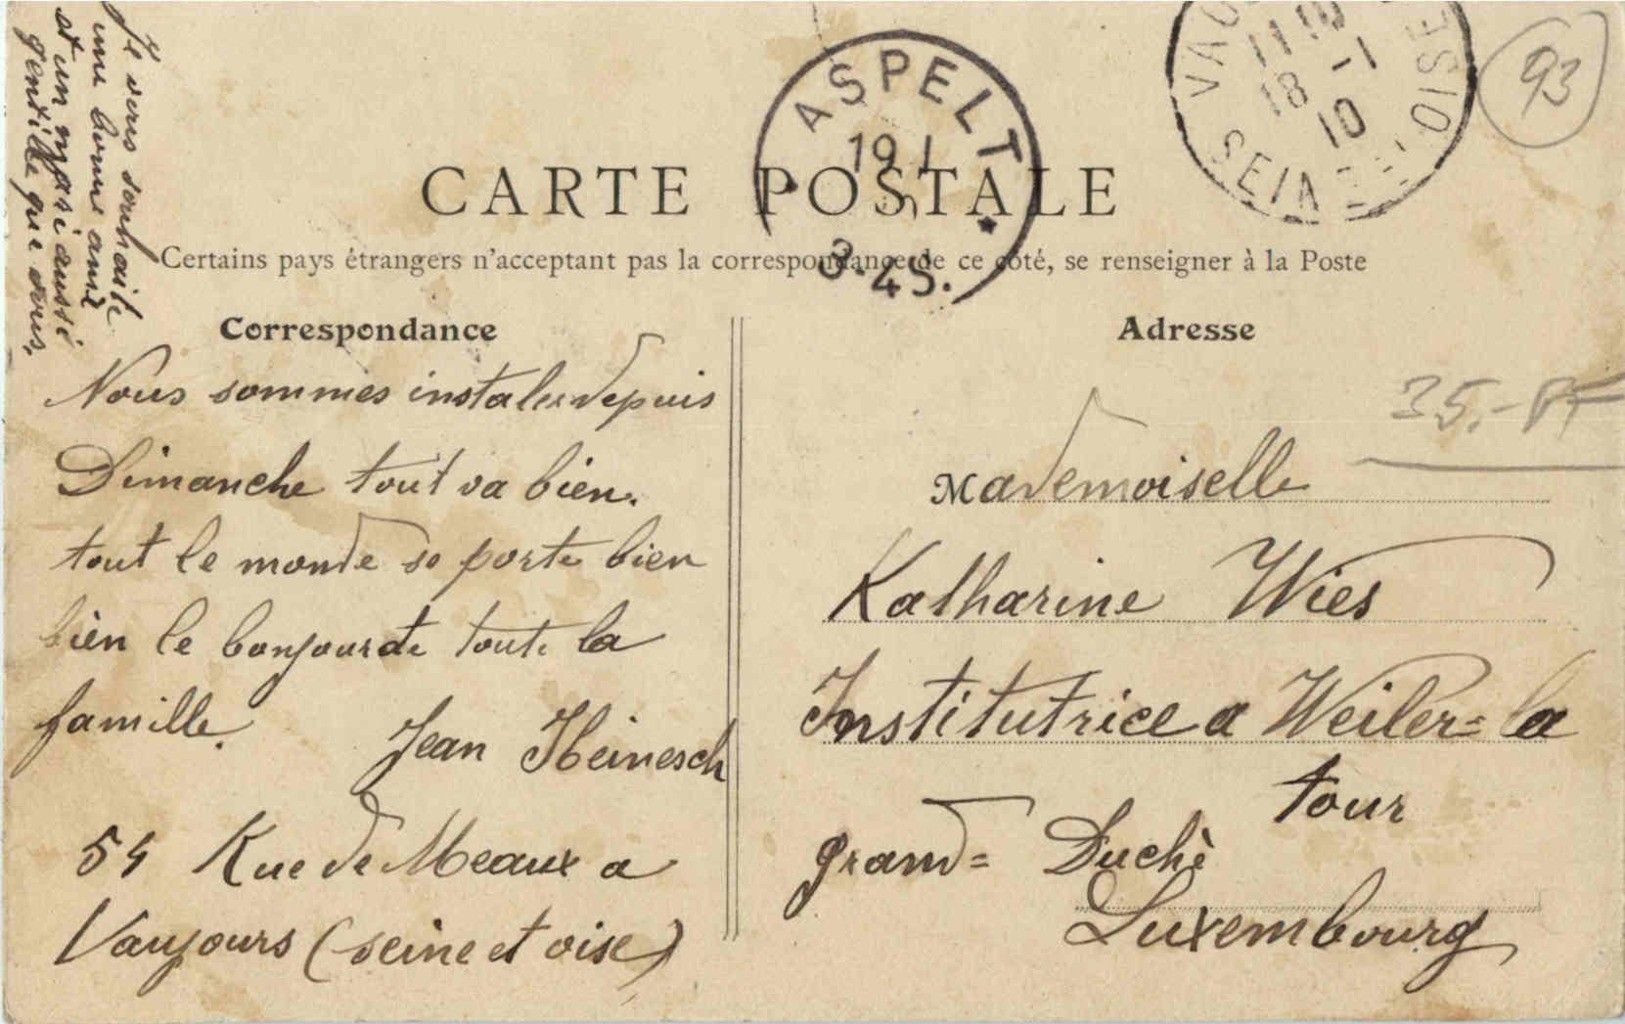 Je vous souhaite
une bonne anné
et un mari aussi
gentille que vous,
ASPELT
19 1
3-45.
11
18 -1
10
SEINE
OISE
93
CARTE POSTALE
Certains pays étrangers n'acceptant pas la correspondance de ce côté, se renseigner à la Poste
Correspondance
Nous sommes instales depuis
Dimanche tout va bien.
tout le monde se porte bien
bien le bonjour de toute la
famille.
Jean Heinesch
54 Rue de Meaux a
Vaujours (seine et oise)
Adresse
35.-
Mademoiselle
Katharine Wies
Institutrice a Weiler=la
tour
grand= Duchè
Luxembourg